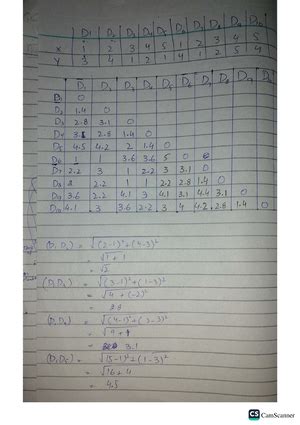 D1 D2 D3 D4 D5 D6 D7 D8 D9 D10
X 1 2 3 4 5 1 2 3 4 5
Y 3 4 1 2 1 4 1 2 5 4
D1 D2 D3 D4 D5 D6 D7 D8 D9 D10
D1 0
D2 1.4 0
D3 2.8 3.1 0
D4 3.1 2.8 1.4 0
D5 4.5 4.2 2 1.4 0
D6 1 1 3.6 3.6 5 0
D7 2.2 3 1 2.2 3 3.1 0
D8 2.2 1 2.2 2.8 1.4 0
D9 3.6 2.2 4.1 3 4.1 3.1 4.4 3.1 0
D10 4.1 3 3.6 2.2 3 4 4.2 2.8 1.4 0
(D1 D2) = √(2-1)²+(4-3)²
= √1+1
= √2
(D1 D3) = √(3-1)²+(1-3)²
= √4+(-2)²
= 2.8
(D1 D4) = √(4-1)²+(2-3)²
= √9+1
= 3.1
(D1 D5) = √(5-1)²+(1-3)²
= √16+4
= 4.5
CS CamScanner